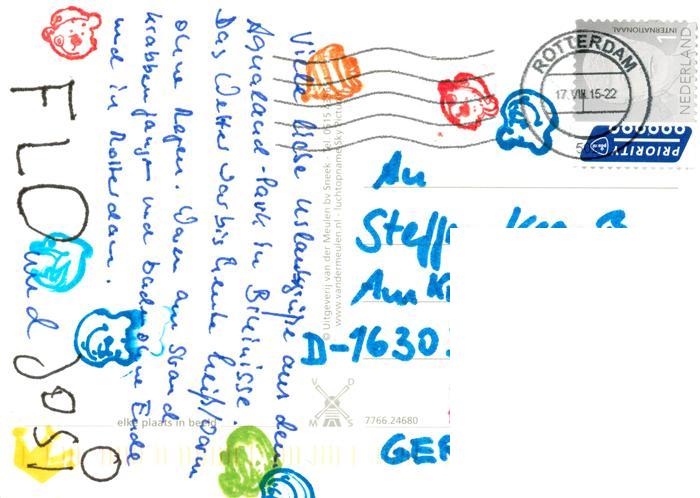 Viele liebe Urlaubsgrüße aus dem
Aqualand-Park in Bruinisse.
Das Wetter war bis heute heiß/warm
ohne Regen. Waren am Strand
Krabben fangen und baden ohne Ende
und in Rotterdam.
FLO
und Josi
© Uitgeverij van der Meulen bv Sneek - Tel. 0515
www.vandermeulen.nl - luchtopname Sky Pictures
elke plaats in beeld
V D
M S
7766.24680
ROTTERDAM
17.VIII.15-22
NEDERLAND
1
INTERNATIONAAL
PRIORITY
An
Am
D-1630
GER